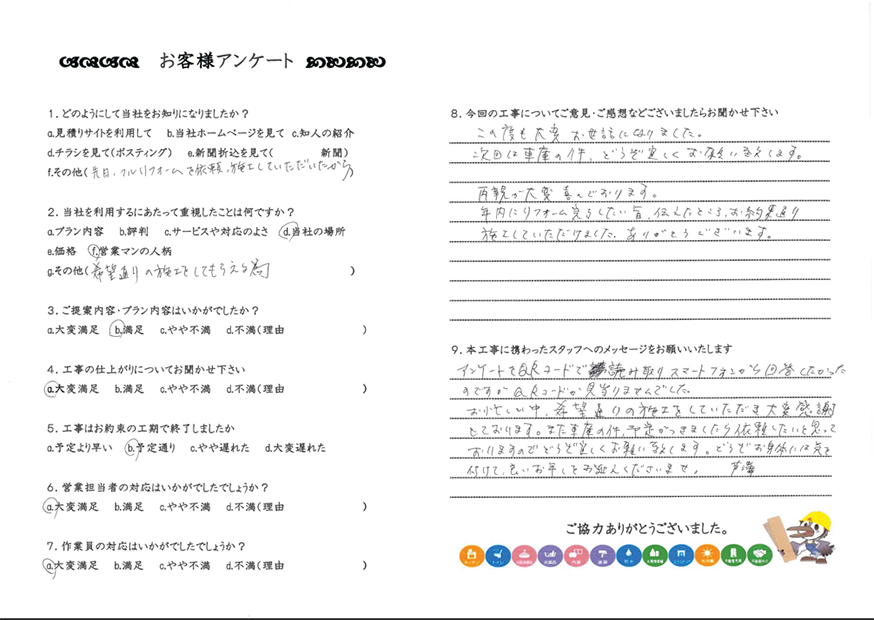 お客様アンケート
1．どのようにして当社をお知りになりましたか？
a.見積りサイトを利用して b.当社ホームページを見て c.知人の紹介
d.チラシを見て(ポスティング) e.新聞折込を見て( 新聞)
f.その他(先日、フルリフォームで依頼、施工していただいたから)
2．当社を利用するにあたって重視したことは何ですか？
a.プラン内容 b.評判 c.サービスや対応のよさ d.当社の場所
e.価格 f.営業マンの人柄
g.その他(希望通りの施工をしてもらえる為)
3．ご提案内容・プラン内容はいかがでしたか？
a.大変満足 b.満足 c.やや不満 d.不満(理由 )
4．工事の仕上がりについてお聞かせ下さい
a.大変満足 b.満足 c.やや不満 d.不満(理由 )
5．工事はお約束の工期で終了しましたか
a.予定より早い b.予定通り c.やや遅れた d.大変遅れた
6．営業担当者の対応はいかがでしたでしょうか？
a.大変満足 b.満足 c.やや不満 d.不満(理由 )
7．作業員の対応はいかがでしたでしょうか？
a.大変満足 b.満足 c.やや不満 d.不満(理由 )
8．今回の工事についてご意見・ご感想などございましたらお聞かせ下さい
この度も大変お世話になりました。
次回は車庫の件、どうぞ宜しくお願い致します。
両親が大変喜んでおります。
年内にリフォーム完了したい旨、伝えたところ、お約束通り
施工していただけました。ありがとうございます。
9．本工事に携わったスタッフへのメッセージをお願いいたします
アンケートでQRコードで読み取りスマートフォンから回答したかった
のですがQRコードが見当りませんでした。
お忙しい中、希望通りの施工をしていただき大変感謝
しております。また車庫の件、予定がつきましたら依頼したいと思って
おりますのでどうぞ宜しくお願い致します。どうぞお身体には気を
付けて、良いお年をお迎えくださいませ。
ご協力ありがとうございました。
キッチン トイレ